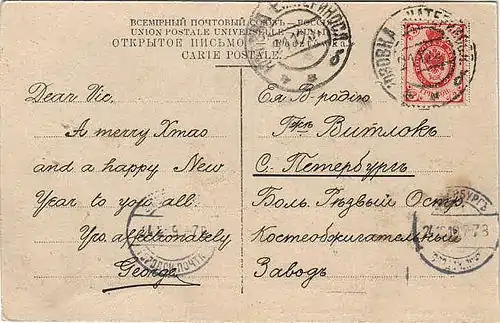 ВСЕМІРНЫЙ ПОЧТОВЫЙ СОЮЗЪ. РОССІЯ
UNION POSTALE UNIVERSELLE. RUSSIE
ОТКРЫТОЕ ПИСЬМО
CARTE POSTALE
Dear Vic,
A merry Xmas
and a happy New
Year to you all.
Yrs. affectionately
George
Ея В-родію
Г-жѣ Витлокъ
С. Петербургъ
Боль. Рѣзвый Остр.
Костеобжигательный
Заводъ